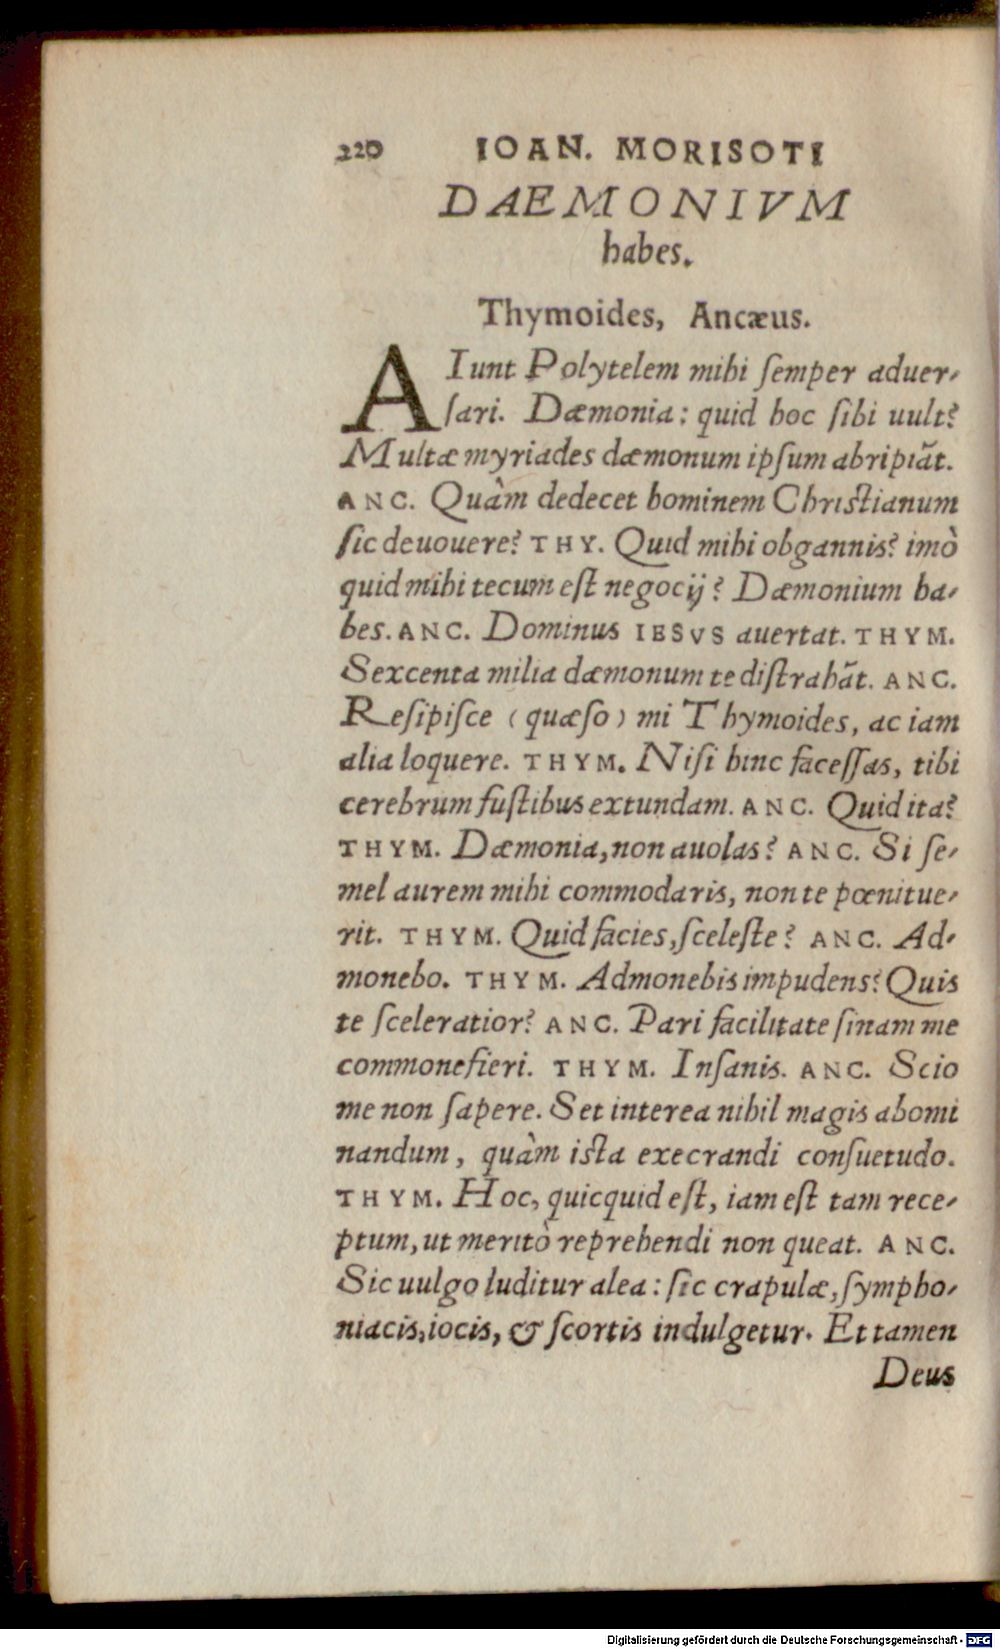 220 IOAN. MORISOTI
DAEMONIVM
habes.
Thymoides, Ancæus.
AIunt Polytelem mihi ſemper aduer-
ſari. Dæmonia: quid hoc ſibi uult?
Multæ myriades dæmonum ipſum abripiãt.
ANC. Quàm dedecet hominem Chriſtianum
ſic deuouere? THY. Quid mihi obgannis? imò
quid mihi tecum eſt negocij? Dæmonium ha-
bes. ANC. Dominus IESVS auertat. THYM.
Sexcenta milia dæmonum te diſtrahãt. ANC.
Reſipiſce (quæſo) mi Thymoides, ac iam
alia loquere. THYM. Niſi hinc faceſſas, tibi
cerebrum fuſtibus extundam. ANC. Quid ita?
THYM. Dæmonia, non auolas? ANC. Si ſe-
mel aurem mihi commodaris, non te pœnitue-
rit. THYM. Quid facies, ſceleſte? ANC. Ad-
monebo. THYM. Admonebis impudens? Quis
te ſceleratior? ANC. Pari facilitate ſinam me
commonefieri. THYM. Inſanis. ANC. Scio
me non ſapere. Set interea nihil magis abomi
nandum, quàm iſta execrandi conſuetudo.
THYM. Hoc, quicquid eſt, iam eſt tam rece-
ptum, ut meritò reprehendi non queat. ANC.
Sic uulgo luditur alea: ſic crapulæ, ſympho-
niacis, iocis, & ſcortis indulgetur. Et tamen
Deus
Digitalisierung gefördert durch die Deutsche Forschungsgemeinschaft - DFG